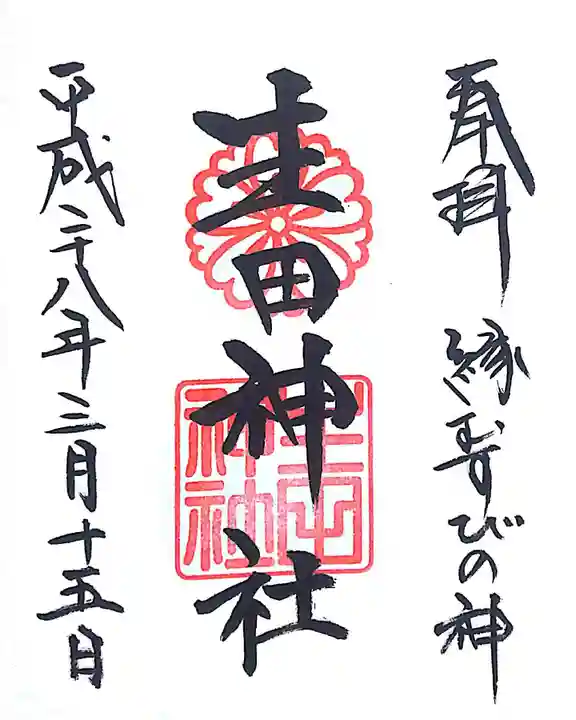 奉拝 縁むすびの神
生田神社
平成二十八年三月十五日
生田
神社